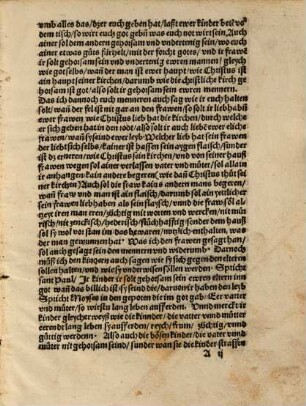 vmb alles das/ dzer euch geben hat/ last ewer kinder bei vo
dem tisch/ so wirt euch got gebñ was euch not wirt sein/ Auch
einer sol dem andern gehorsam vnd vndertenig sein/ wo euch
einer etwas gůts fürhelt/ mit der forcht gotes/ vnd ir fraw
ir solt gehorsam sein vnd vndertenig ewren mannen/ gleych
wie got selbs/ wañ der man ist ewr haupt/ wie Christus ist
ain haupt seiner kirchen/ darumb wie die christlich kirch ge
horsam ist got/ also solt ir gehorsam sein ewren mannen.
Das ich dannoch euch mennern auch sag wie ir euch halten
solt/ wañ der fel ist mit gar an den frawen/ so solt ir lieb habñ
ewer frawen wie Christus lieb hat die kirchen/ durch welche
er sich geben hat in den todt/ also solt ir auch liebē ewer eliche
frawē/ wañ sy seind ewer leyb Welcher lieb hat sein frawen
der liebt sich selbs/ kainer ist hassen sein aygen flaisch/ sunder
ist es dienen/ wie Christus sein kirchen/ vnd von seiner hauß
frawen wegen sol ainer verlassen vater vnd můter/ sol alla in
ir anhangen kain andere begeren/ wie dañ Christus thůt sei
ner kirchen/ Auch sol die fraw kains anders mans begeren/
wañ fraw vnd man ist ain flaisch/ darumb sol ain yetlicher
sein frawen liebhaben als sein flaisch/ vnd die fraw sol al
zeyt iren man eren/ züchtig mit worten vnd wercken/ nit mü
risch/ nit
sol sy wol vor stan
der man gewunnen hat/ Was ich den frawen gesagt hañ/
sol auch gesagt sein den mennern vnd widerumb/ Darnoch
můß ich den kindern auch sagen wie sy sich gegen den eltern
sollen halten/ vnd wie sy vnderwisen sollen werden/ Spricht
sant Paul/ Ir kinder ir solt gehorsam sein ewren eltern im
got wañ das billich ist/ sy seind die/ daruon ir haben das leyb
Spricht Moyses in den gepoten die im got gab/ Eer vatter
vnd můter/ so wirstu lang leben auff erden/ Vnd merckt ir
kinder gleycher weyß wie die kinder/ die vatter vnd můter
eeren lang leben sy auff erden/ reych/ frum/ züchtig/ vnnd
güttig werden/ Also auch die bösen kinder/ die vatter vnd
můter nit gehorsam seind/ sunder wan sie die kinder straffen
A ij